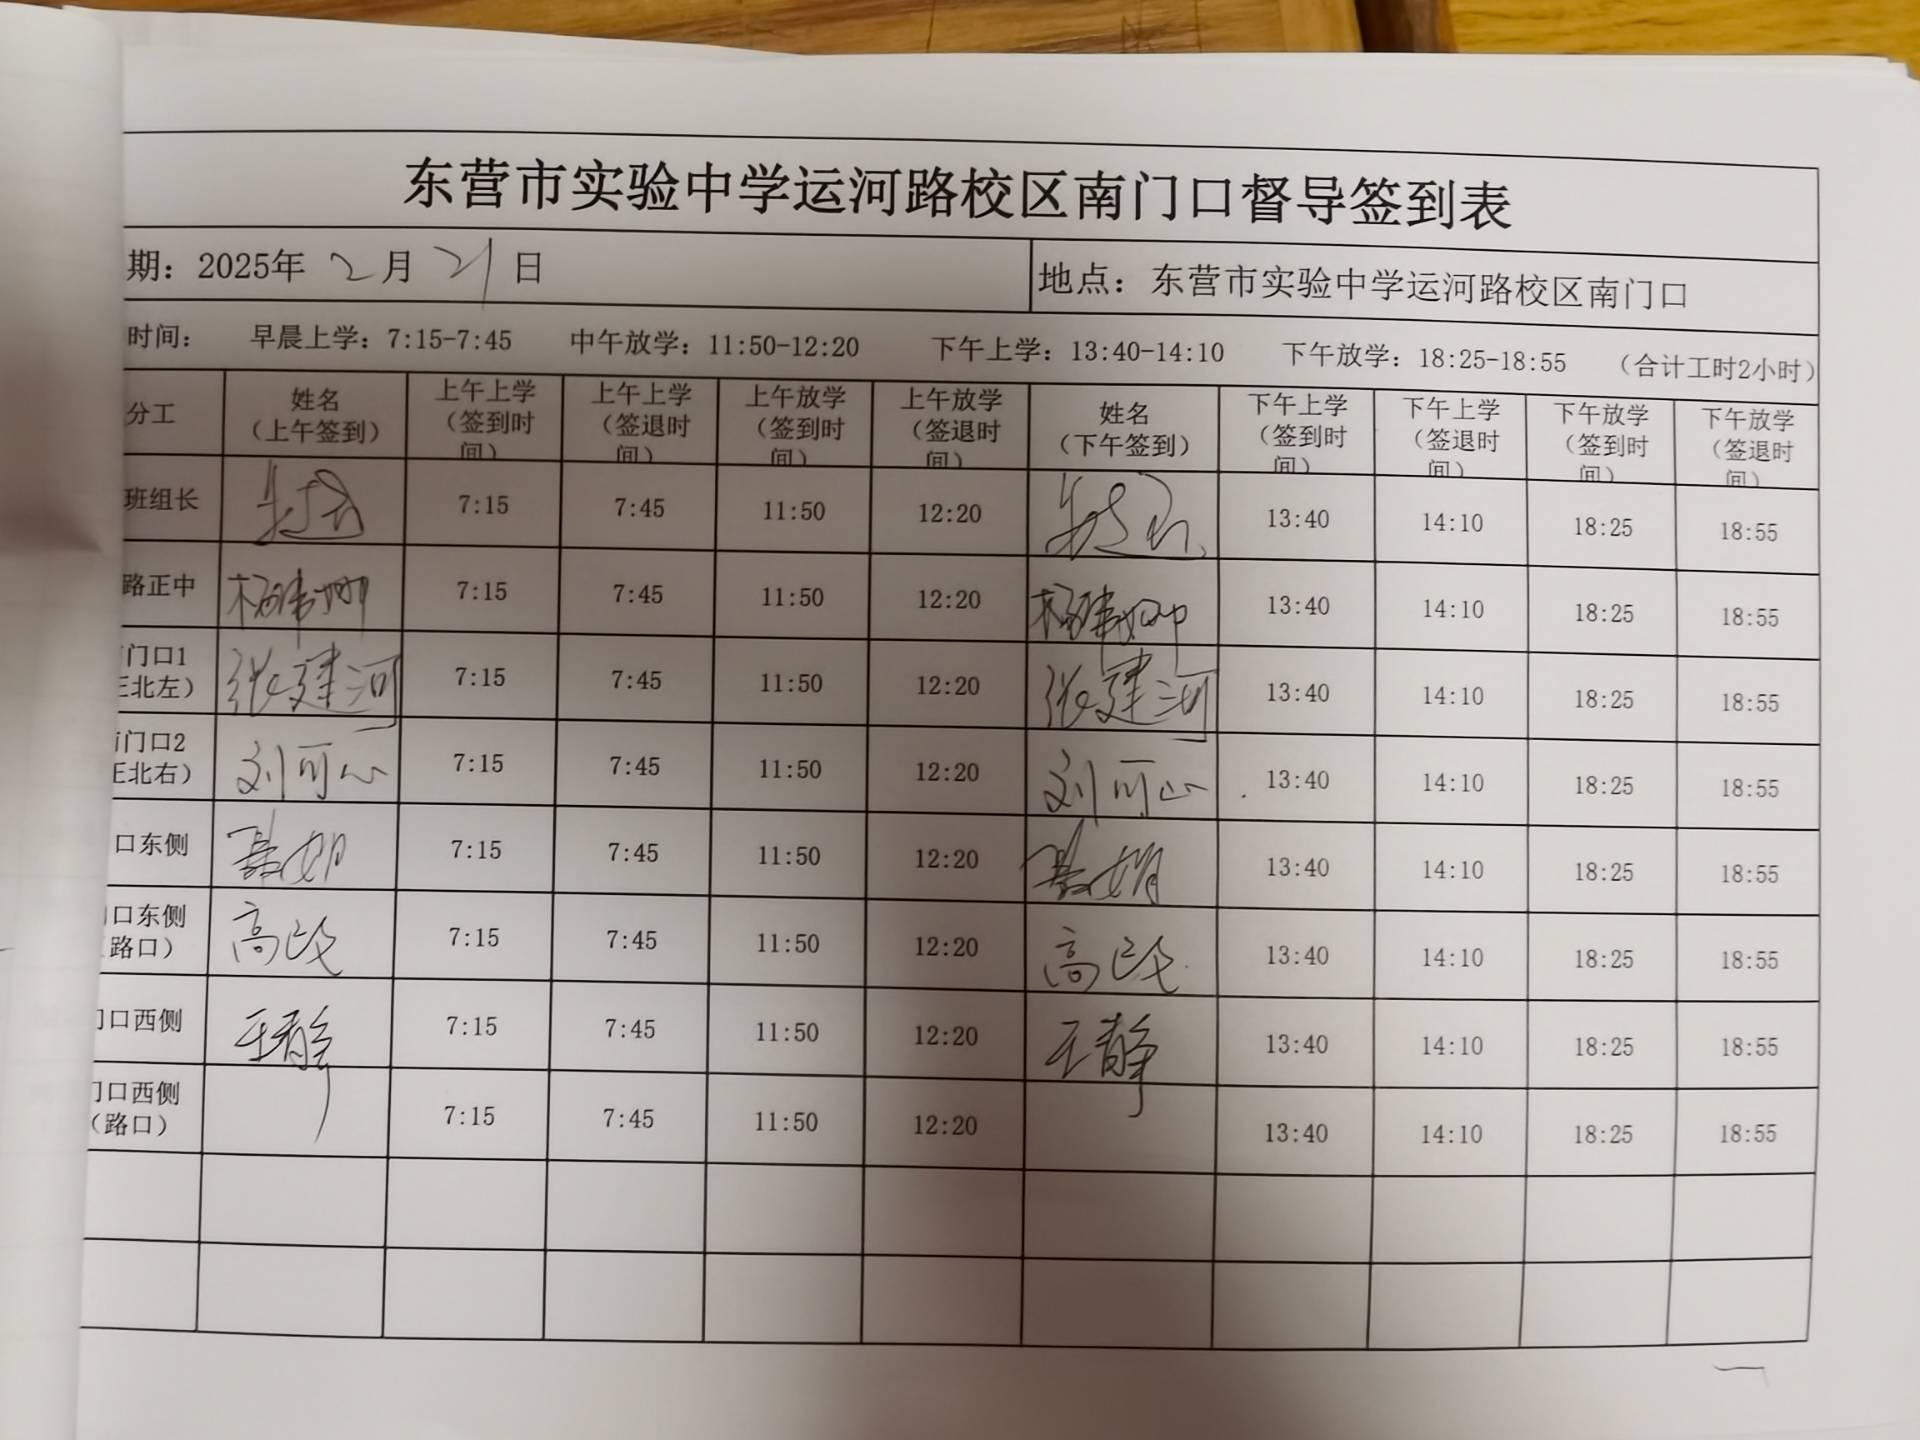 东营市实验中学运河路校区南门口督导签到表
期：2025年 2 月 21 日 地点：东营市实验中学运河路校区南门口
时间： 早晨上学：7:15-7:45 中午放学：11:50-12:20 下午上学：13:40-14:10 下午放学：18:25-18:55 （合计工时2小时）
分工 姓名（上午签到） 上午上学（签到时间） 上午上学（签退时间） 上午放学（签到时间） 上午放学（签退时间） 姓名（下午签到） 下午上学（签到时间） 下午上学（签退时间） 下午放学（签到时间） 下午放学（签退时间）
班组长 7:15 7:45 11:50 12:20 13:40 14:10 18:25 18:55
路正中 7:15 7:45 11:50 12:20 13:40 14:10 18:25 18:55
门口1 北左） 张建河 7:15 7:45 11:50 12:20 张建河 13:40 14:10 18:25 18:55
门口2 北右） 刘可心 7:15 7:45 11:50 12:20 刘可心 13:40 14:10 18:25 18:55
口东侧 7:15 7:45 11:50 12:20 13:40 14:10 18:25 18:55
口东侧 路口） 高 7:15 7:45 11:50 12:20 高 13:40 14:10 18:25 18:55
门口西侧 王静 7:15 7:45 11:50 12:20 王静 13:40 14:10 18:25 18:55
门口西侧（路口） 7:15 7:45 11:50 12:20 13:40 14:10 18:25 18:55